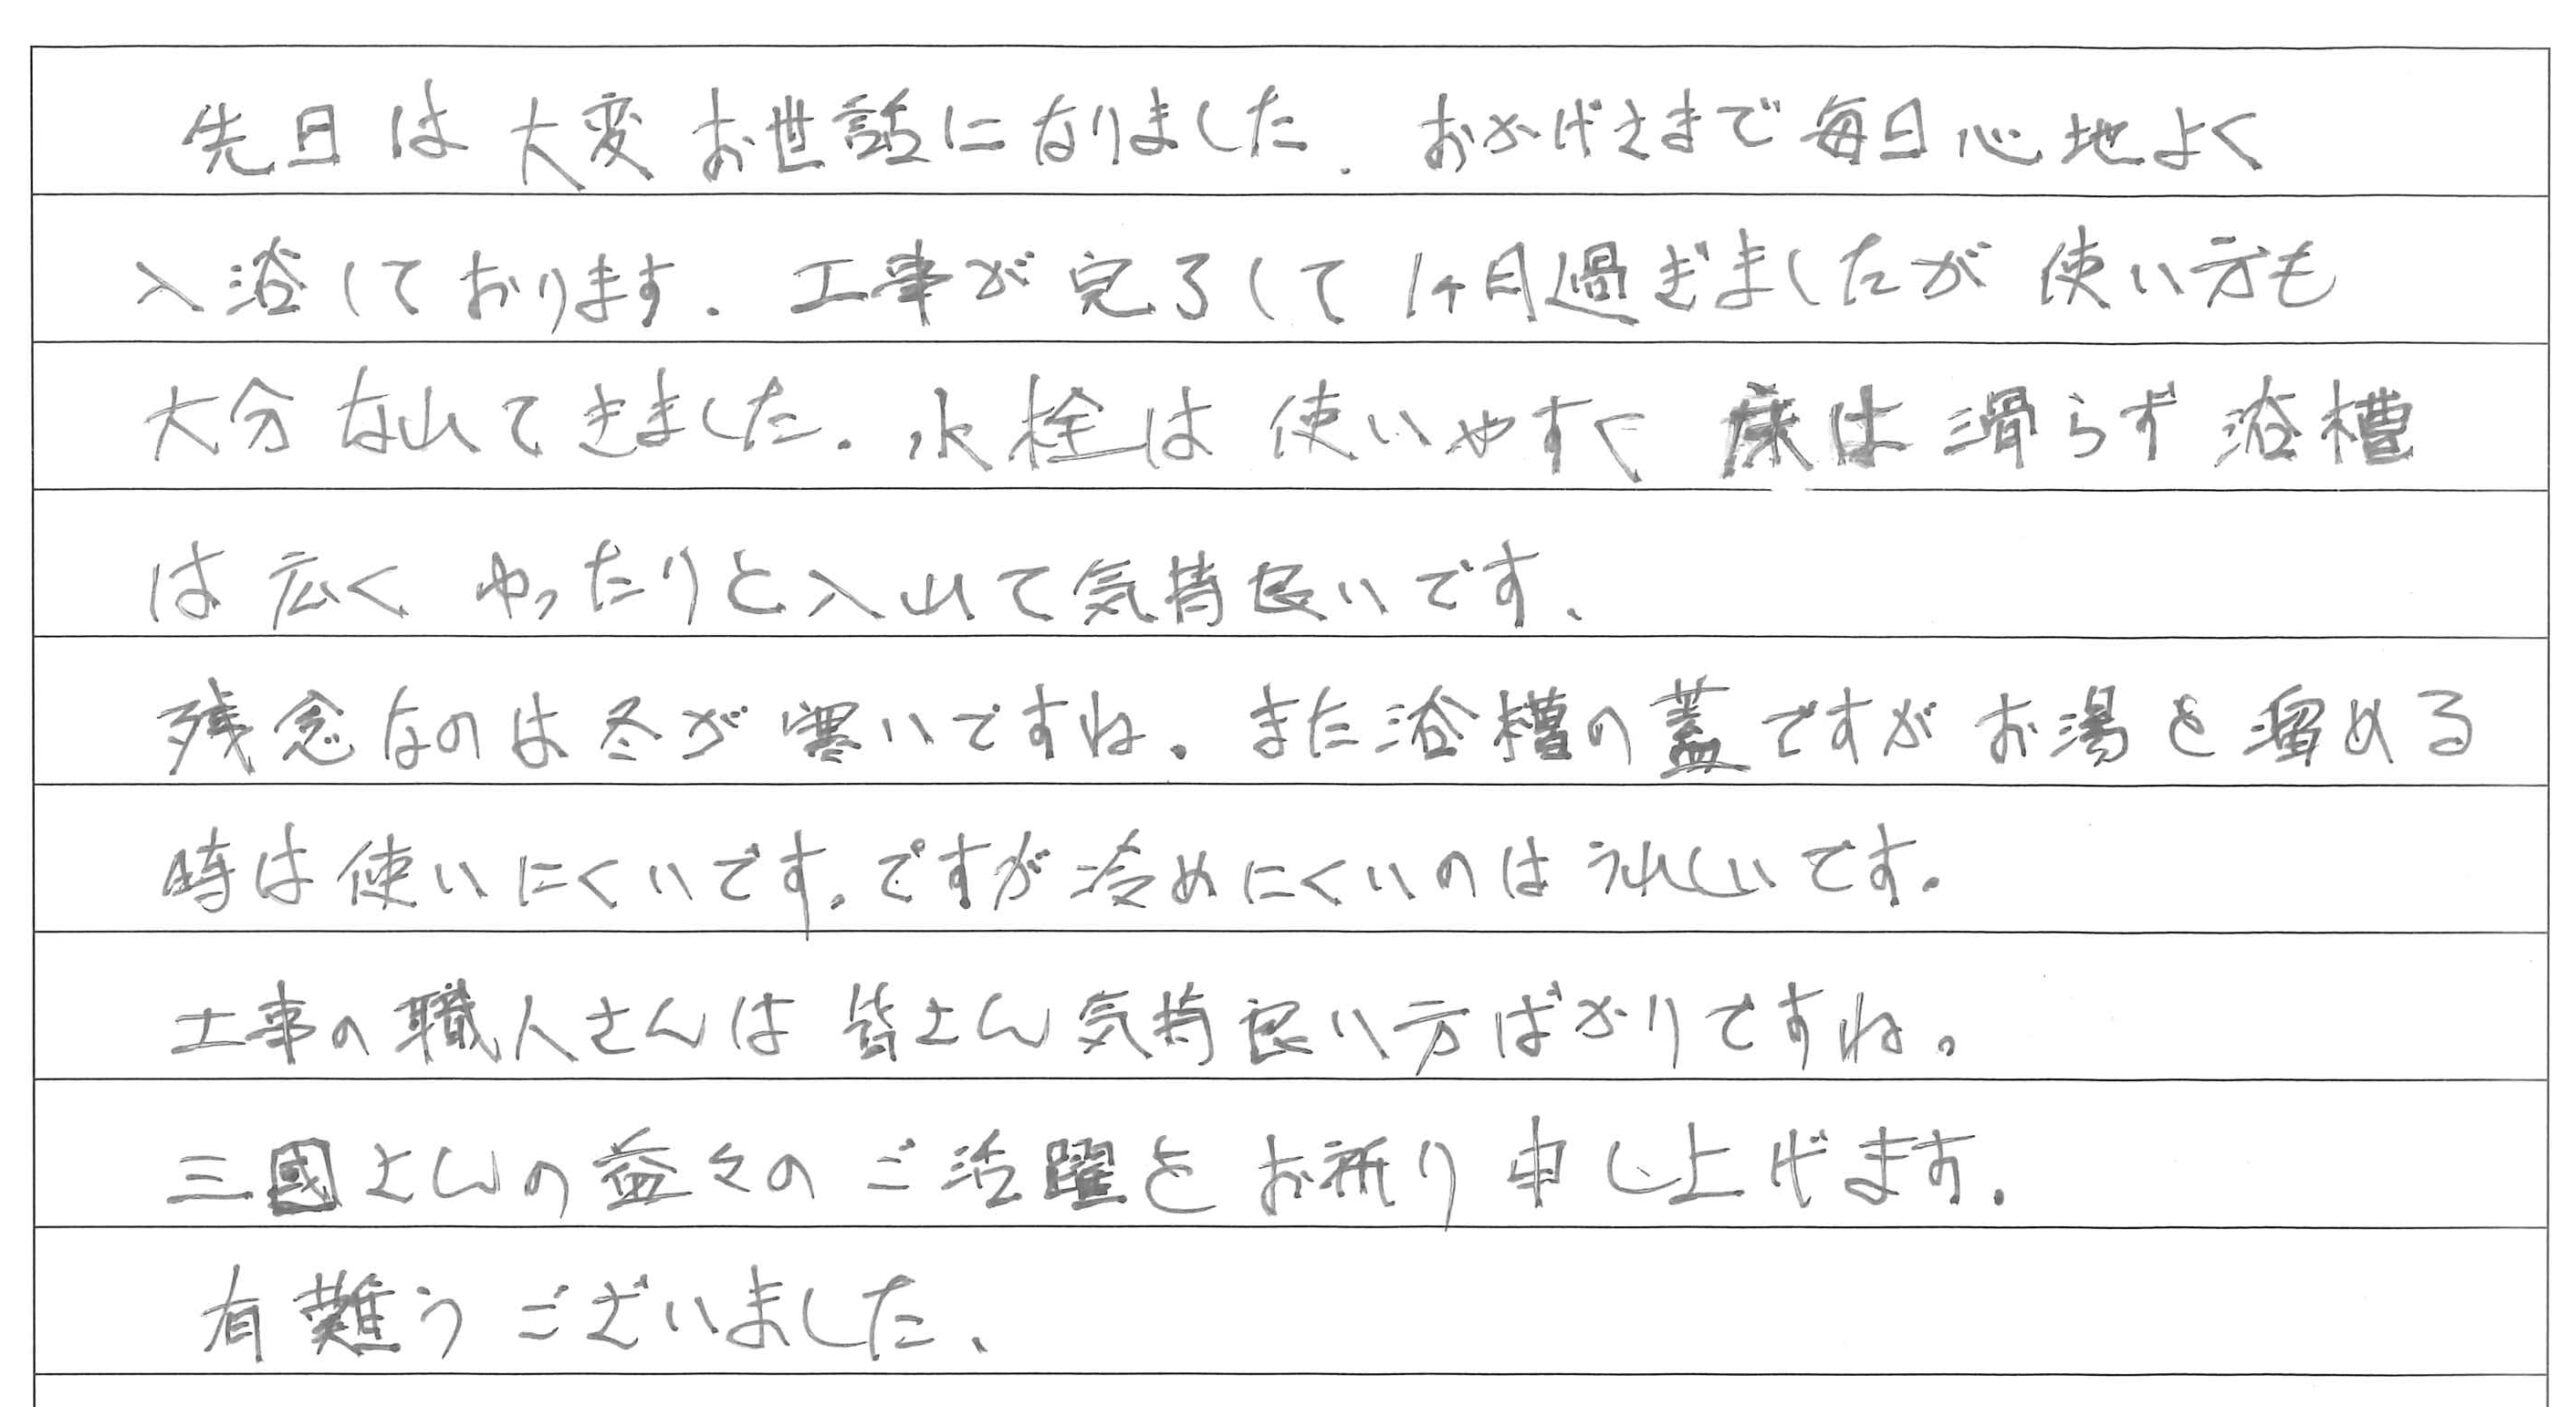 先日は大変お世話になりました。おかげさまで毎日心地よく
入浴しております。工事が完了して1ヶ月過ぎましたが使い方も
大分なれてきました。水栓は使いやすく床は滑らず浴槽
は広くゆったりと入れて気持良いです。
残念なのは冬が寒いですね。また浴槽の蓋ですがお湯を溜める
時は使いにくいです。ですが冷めにくいのはうれしいです。
工事の職人さんは皆さん気持良い方ばかりですね。
三國さんの益々のご活躍をお祈り申し上げます。
有難うございました。